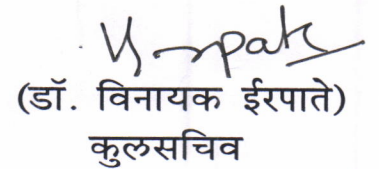 (डॉ. विनायक ईरपाते)
कुलसचिव